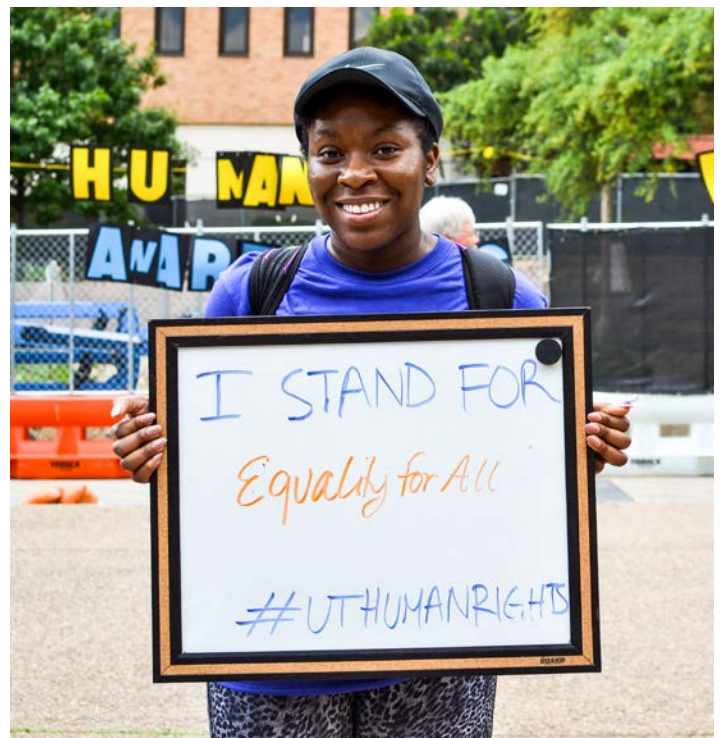 HUMAN
I STAND FOR
Equality for All
#UTHUMANRIGHTS